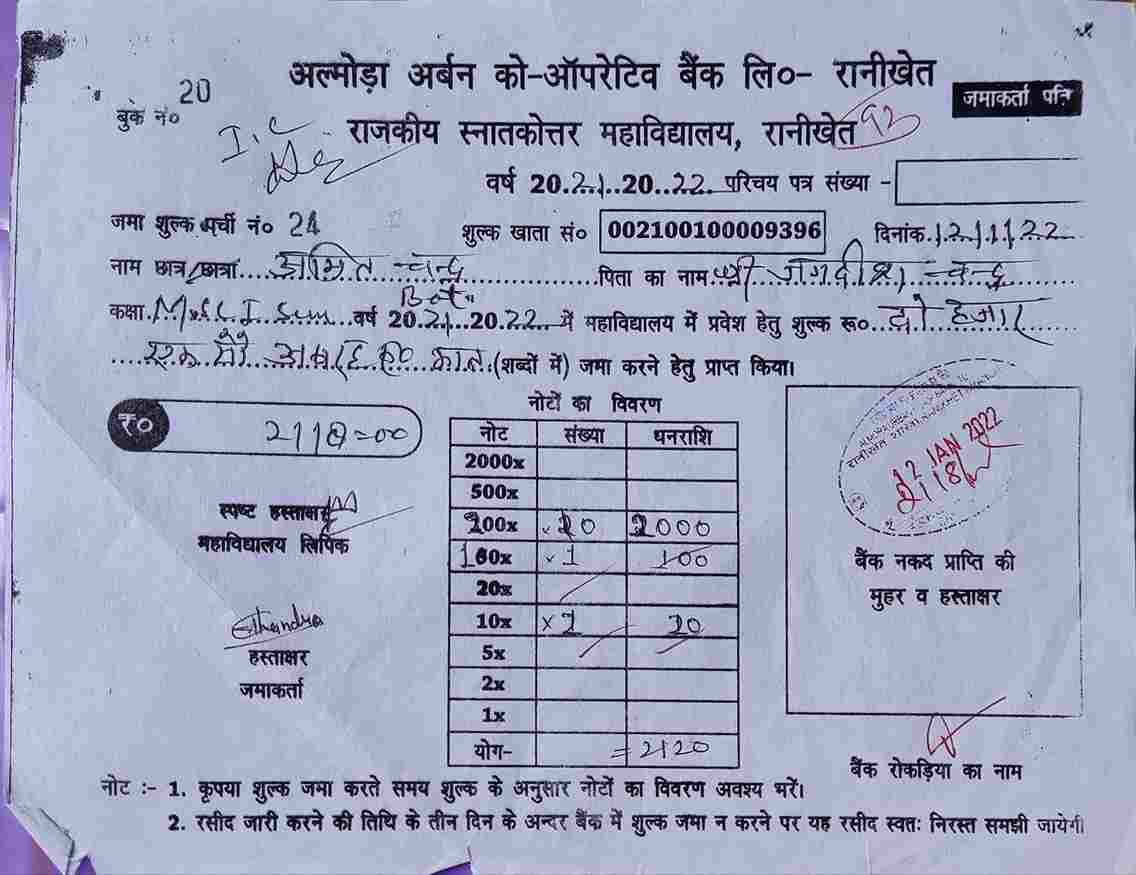 अल्मोड़ा अर्बन को-ऑपरेटिव बैंक लि०- रानीखेत
जमाकर्ता प्रति
बुक नं० 20
राजकीय स्नातकोत्तर महाविद्यालय, रानीखेत
वर्ष 20.21..20..22.. परिचय पत्र संख्या -
जमा शुल्क पर्ची नं० 24 शुल्क खाता सं० 002100100009396 दिनांक.12/1/22
नाम छात्र/छात्रा....अमित चन्द्र.....पिता का नाम श्री जगदीश चन्द्र
Bot
कक्षा.M.Sc I Sem...वर्ष 20.21..20.22...में महाविद्यालय में प्रवेश हेतु शुल्क रू०..दो हजार
एक सौ (शब्दों में) जमा करने हेतु प्राप्त किया।
रु० 2118=00
नोटों का विवरण
नोट संख्या धनराशि
2000x
500x
200x x 10 2000
100x x 1 100
20x
10x x 2 20
5x
2x
1x
योग- = 2120
स्पष्ट हस्ताक्षर
महाविद्यालय लिपिक
Chandra
हस्ताक्षर
जमाकर्ता
12 JAN 2022
2118/
बैंक नकद प्राप्ति की
मुहर व हस्ताक्षर
बैंक रोकड़िया का नाम
नोट :- 1. कृपया शुल्क जमा करते समय शुल्क के अनुसार नोटों का विवरण अवश्य भरें।
2. रसीद जारी करने की तिथि के तीन दिन के अन्दर बैंक में शुल्क जमा न करने पर यह रसीद स्वतः निरस्त समझी जायेगी